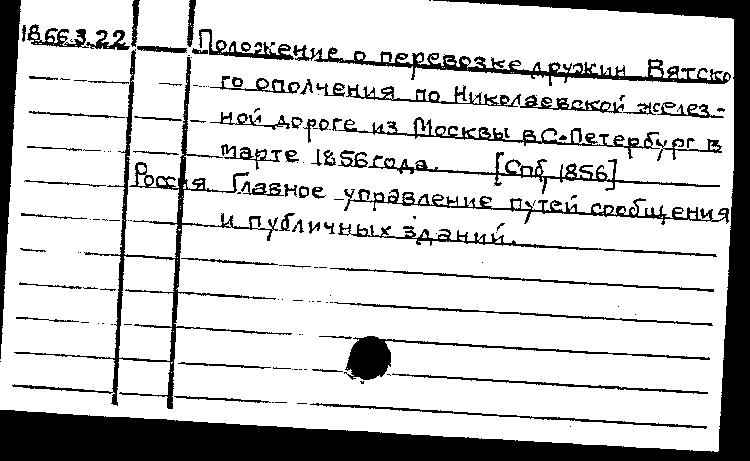 18.66.3.22 Положение о перевозке дружин Вятско
го ополчения по Николаевской желез-
ной дороге из Москвы в С-Петербург в
марте 1856 года. [Спб, 1856]
Россия. Главное управление путей сообщения
и публичных зданий.